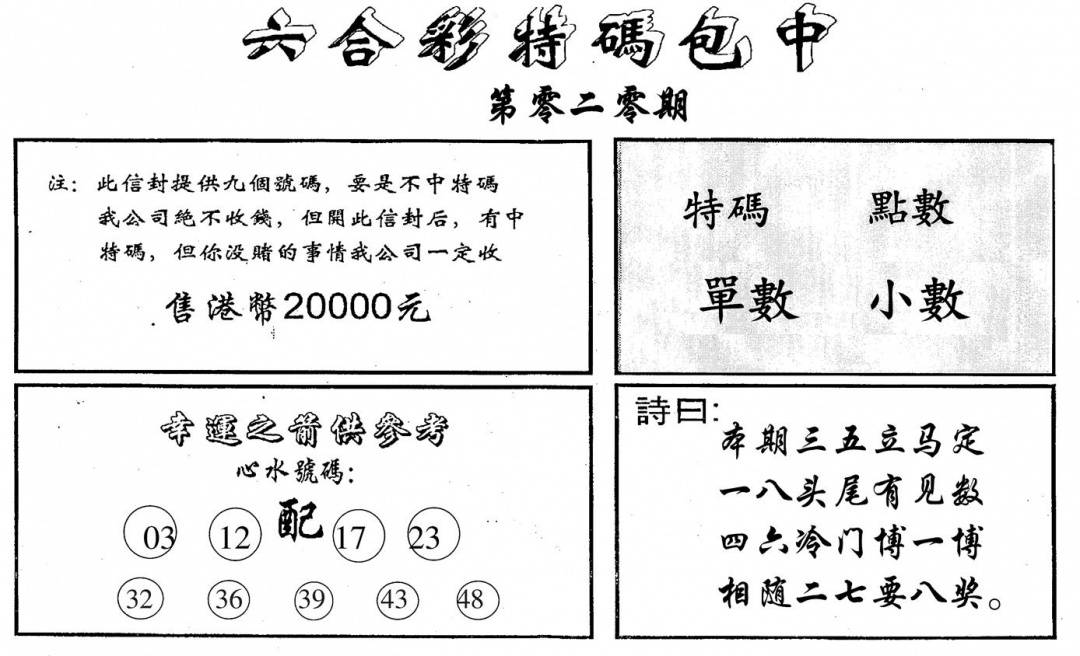 六合彩特碼包中
第零二零期
注：此信封提供九個號碼，要是不中特碼
我公司絕不收錢，但開此信封后，有中
特碼，但你没賭的事情我公司一定收
售港幣20000元
特碼 點數
單數 小數
幸運之箭供參考
心水號碼：
配
03 12 17 23
32 36 39 43 48
詩曰：
本期三五立马定
一八头尾有见数
四六冷门博一博
相随二七要八奖。